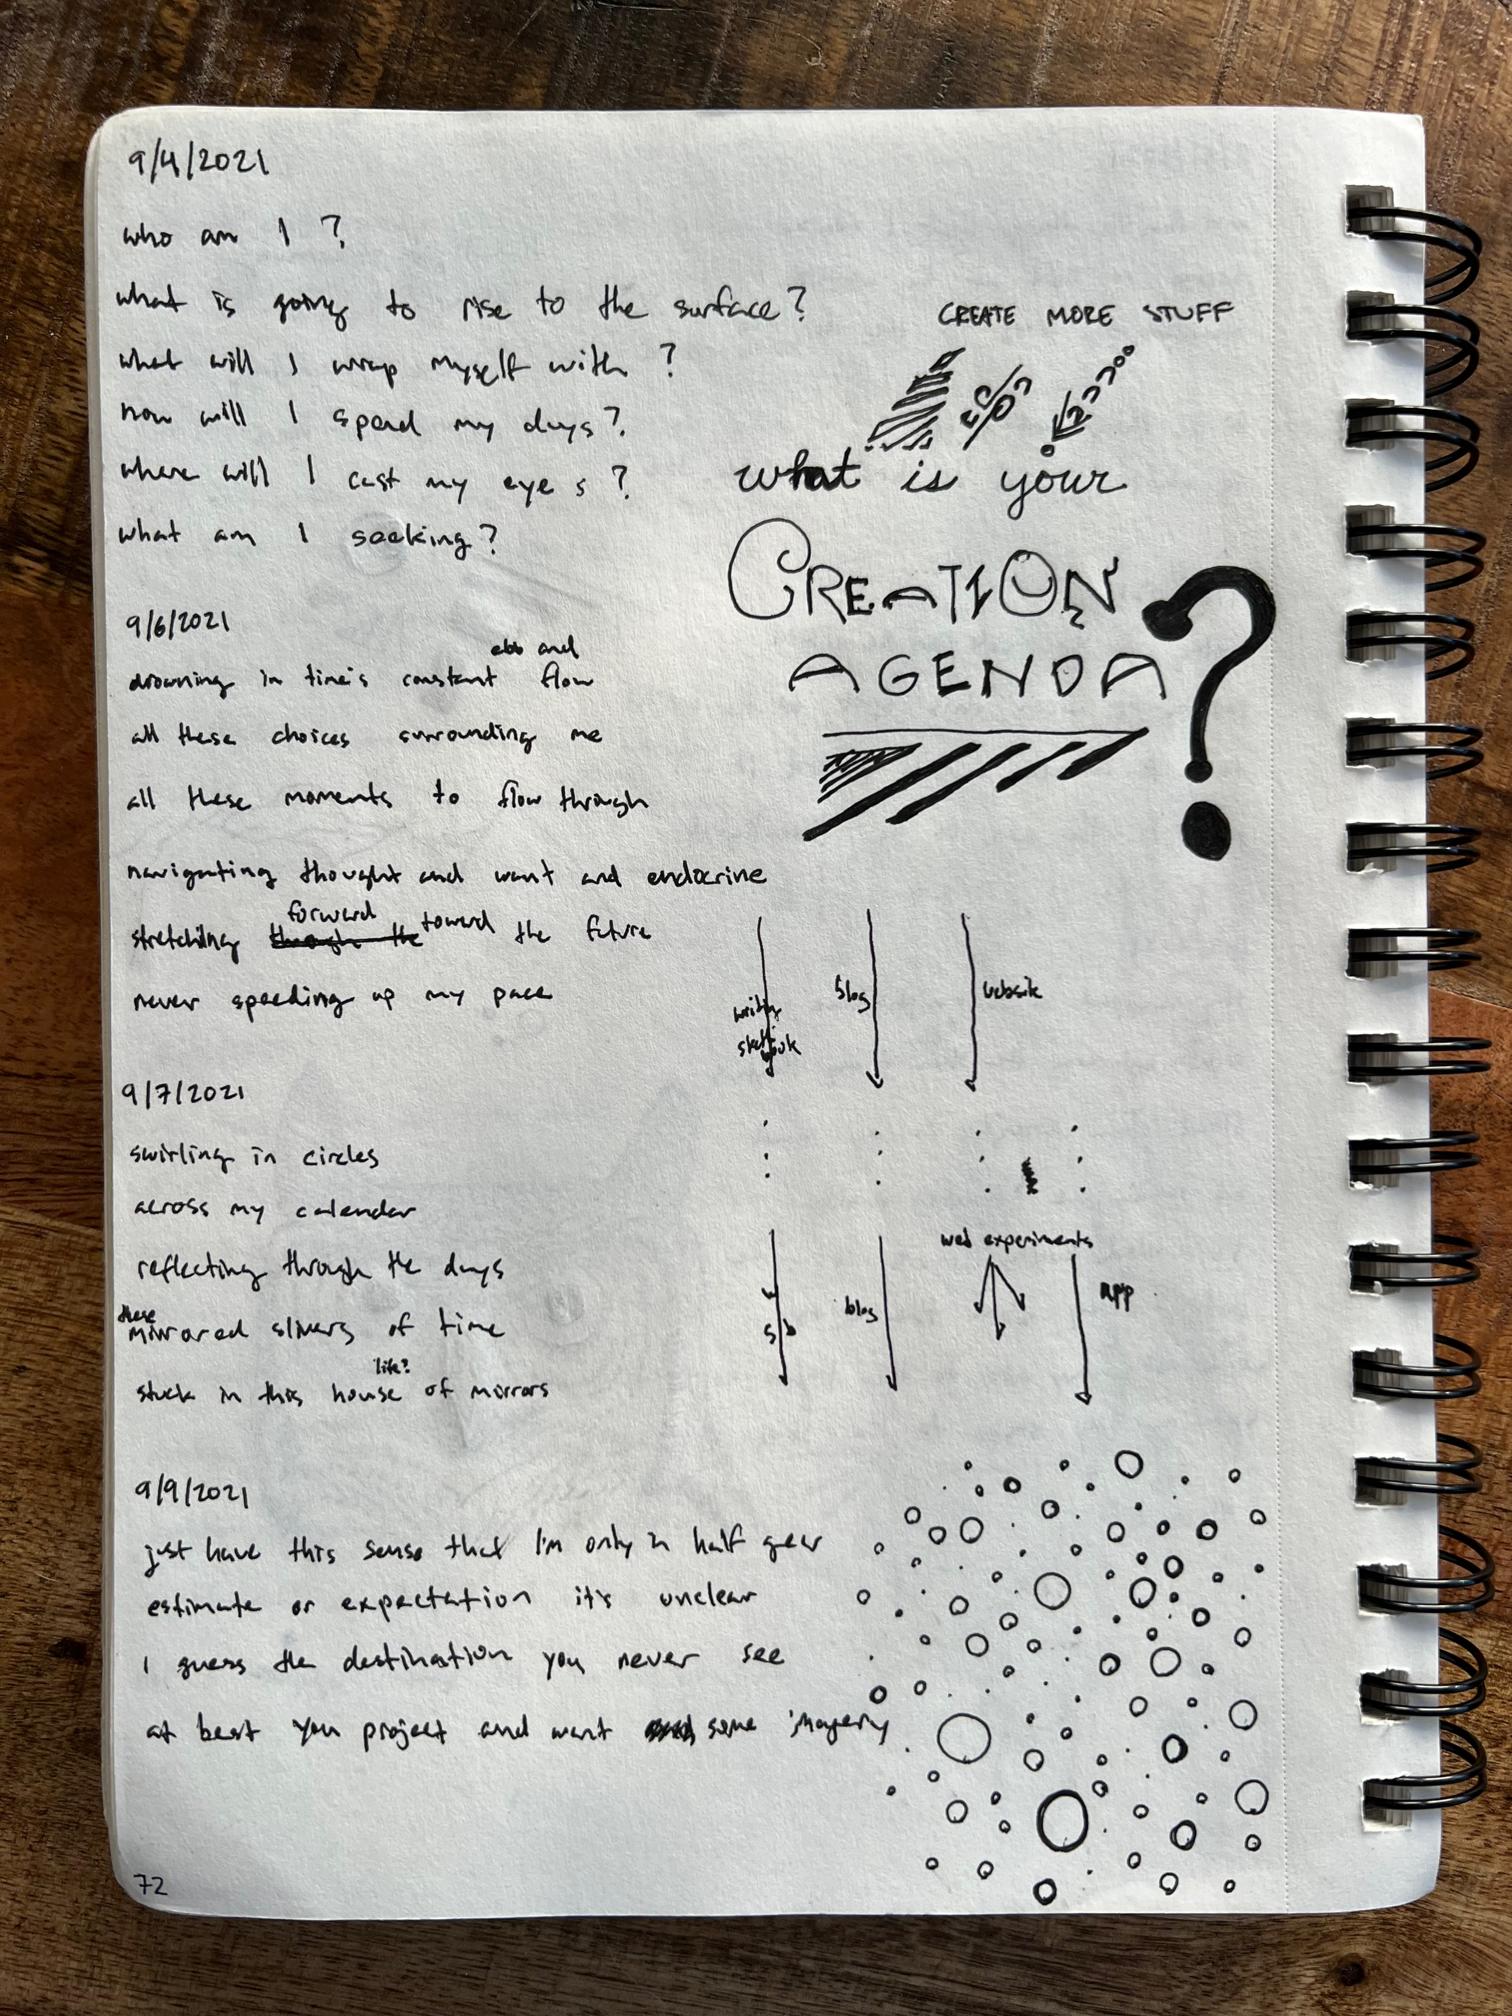 9/4/2021
who am I ?
what is going to rise to the surface?
what will I wrap myself with ?
how will I spend my days?
where will I cast my eyes ?
what am I seeking?
9/6/2021
ebb and
drowning in time's constant flow
all these choices surrounding me
all these moments to flow through
navigating thought and want and endocrine
forward
stretching through the toward the future
never speeding up my pace
9/7/2021
swirling in circles
across my calendar
reflecting through the days
these
mirrored slivers of time
life?
stuck in this house of mirrors
9/9/2021
just have this sense that I'm only in half gear
estimate or expectation it's unclear
I guess the destination you never see
at best you project and want some imagery
72
CREATE MORE STUFF
what is your
CREATION
AGENDA?
writing
sketchbook
blog
website
web experiments
w
s/b
blog
app